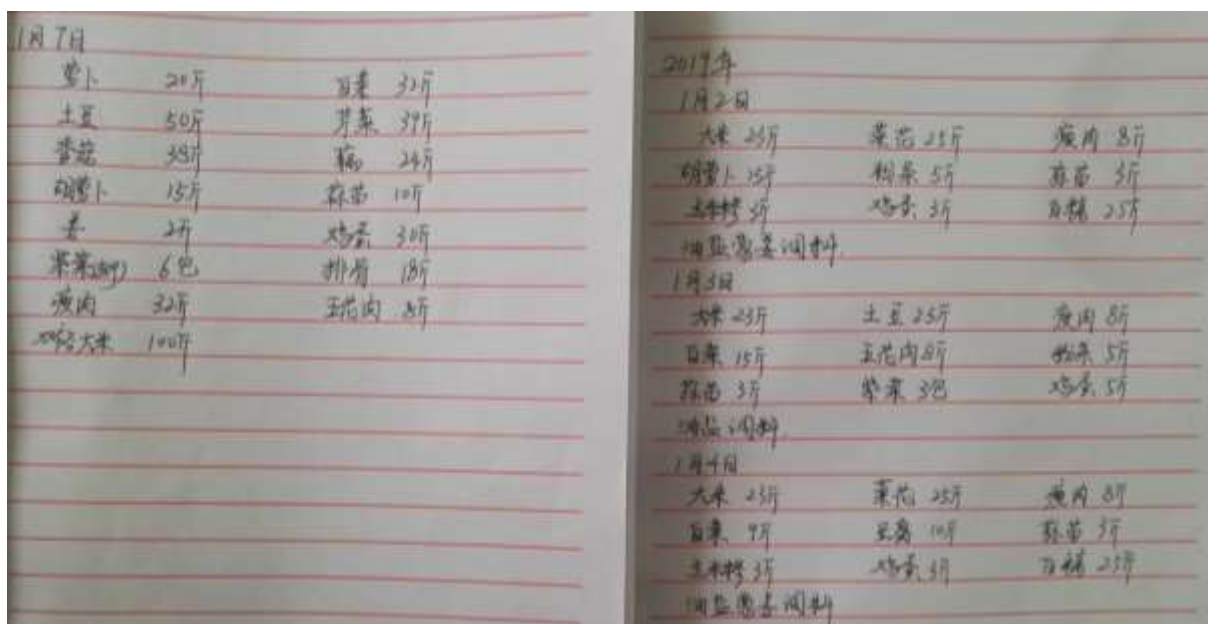 1月7日
萝卜 20斤 白菜 32斤
土豆 50斤 芹菜 39斤
香菇 38斤 24斤
胡萝卜 15斤 蒜苗 10斤
姜 2斤 鸡蛋 30斤
紫菜 6包 排骨 18斤
瘦肉 32斤 五花肉 8斤
大米 100斤
2019年
1月2日
大米 23斤 菜花 25斤 瘦肉 8斤
胡萝卜 15斤 粉条 5斤 蒜苗 3斤
3斤 鸡蛋 3斤 25斤
油盐葱姜调料.
1月3日
大米 23斤 土豆 25斤 瘦肉 8斤
白菜 15斤 五花肉 8斤 粉条 5斤
蒜苗 3斤 紫菜 3包 鸡蛋 5斤
油盐调料.
1月4日
大米 23斤 菜花 25斤 瘦肉 8斤
白菜 9斤 豆腐 10斤 蒜苗 3斤
3斤 鸡蛋 3斤 25斤
油盐葱姜调料